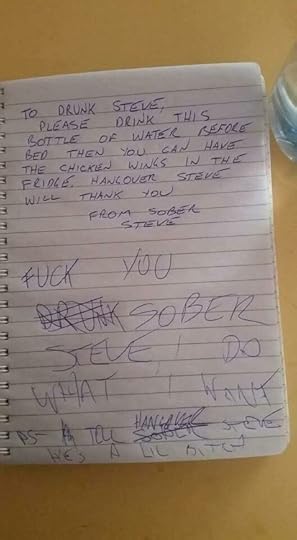 TO DRUNK STEVE,
PLEASE DRINK THIS
BOTTLE OF WATER BEFORE
BED THEN YOU CAN HAVE
THE CHICKEN WINGS IN THE
FRIDGE. HANGOVER STEVE
WILL THANK YOU
FROM SOBER
STEVE
FUCK YOU
DRUNK SOBER
STEVE I DO
WHAT I WANT
PS TELL HANGOVER SOBER STEVE
HE'S A LIL BITCH